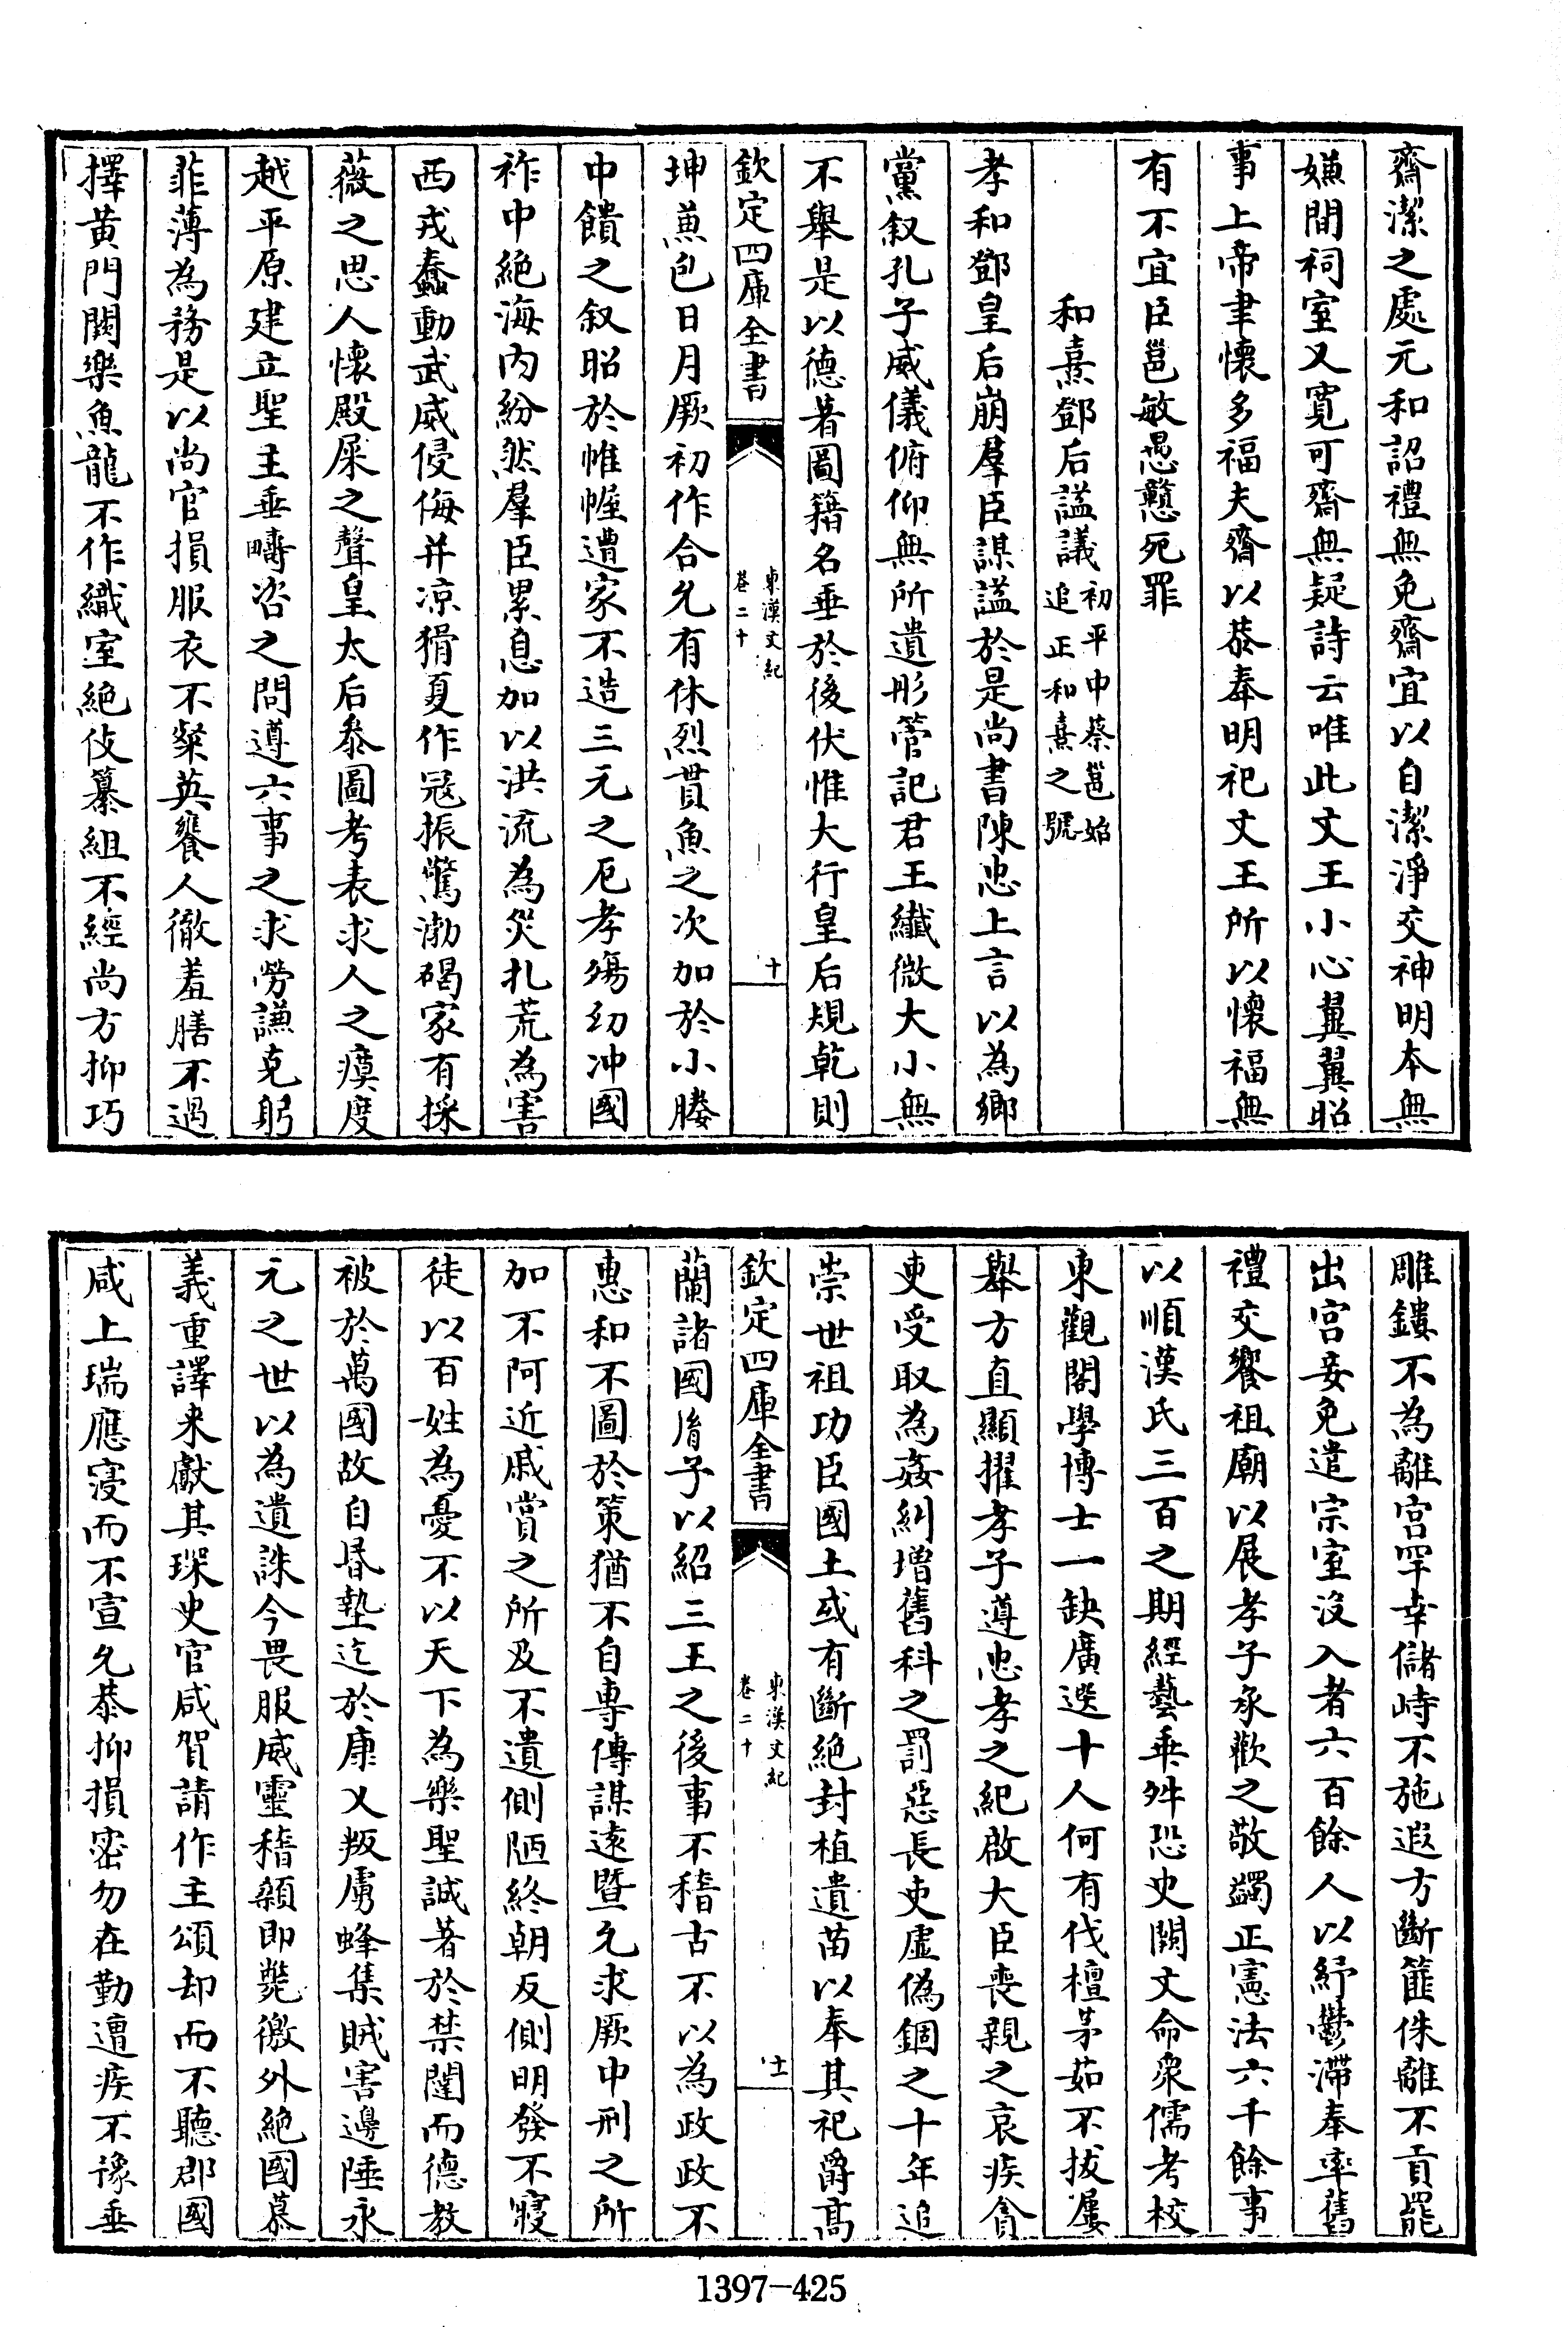 齋潔之處元和詔禮無免齋宜以自潔淨交神明本無
嫌間祠室又寛可齋無疑詩云唯此文王小心翼翼昭
事上帝聿懷多福夫齋以恭奉明祀文王所以懷福無
有不宜臣邕敏愚戇死罪
和熹鄧后諡議初平中蔡邕始
追正和熹之號
孝和鄧皇后崩羣臣謀諡於是尚書陳忠上言以為鄉
黨叙孔子威儀俯仰無所遺彤管記君王纖微大小無
不舉是以德著圖籍名垂於後伏惟大行皇后規乾則
欽定四庫全書
東漢文紀
卷二十
十
坤兼包日月厥初作合允有休烈貫魚之次加於小媵
中饋之叙昭於帷幄遭家不造三元之厄孝殤幼冲國
祚中絶海内紛然羣臣累息加以洪流為災札荒為害
西戎蠢動武威侵侮并凉猾夏作寇振驚渤碣家有採
薇之思人懷殿屎之聲皇太后叅圖考表求人之瘼度
越平原建立聖主垂疇咨之問遵六事之求勞謙克躬
菲薄為務是以尚官損服衣不粲英饔人徹羞膳不過
擇黄門闕樂魚龍不作織室絶伎纂組不經尚方抑巧
雕鏤不為離宫罕幸儲峙不施遐方斷篚侏離不貢罷
出宫妾免遣宗室没入者六百餘人以紓鬱滯奉率舊
禮交饗祖廟以展孝子承歡之敬蠲正憲法六千餘事
以順漢氏三百之期經藝乖舛恐史闕文命衆儒考校
東觀閣學博士一缺廣選十人何有伐檀茅茹不拔屢
舉方直顯擢孝子遵忠孝之紀啟大臣喪親之哀疾貪
吏受取為姦糾增舊科之罰惡長吏虚偽錮之十年追
崇世祖功臣國土或有斷絶封植遺苗以奉其祀爵高
欽定四庫全書
東漢文紀
卷二十
十一
蘭諸國胄子以紹三王之後事不稽古不以為政政不
惠和不圖於策猶不自專傳謀遠暨允求厥中刑之所
加不阿近戚賞之所及不遺側陋終朝反側明發不寢
徒以百姓為憂不以天下為樂聖誠著於禁闥而德教
被於萬國故自昬墊迄於康乂叛虜蜂集賊害邊陲永
元之世以為遺誅今畏服威靈稽顙即斃徼外絶國慕
義重譯来獻其琛史官咸賀請作主頌却而不聽郡國
咸上瑞應寖而不宣允恭抑損密勿在勤遭疾不豫垂
1397-425